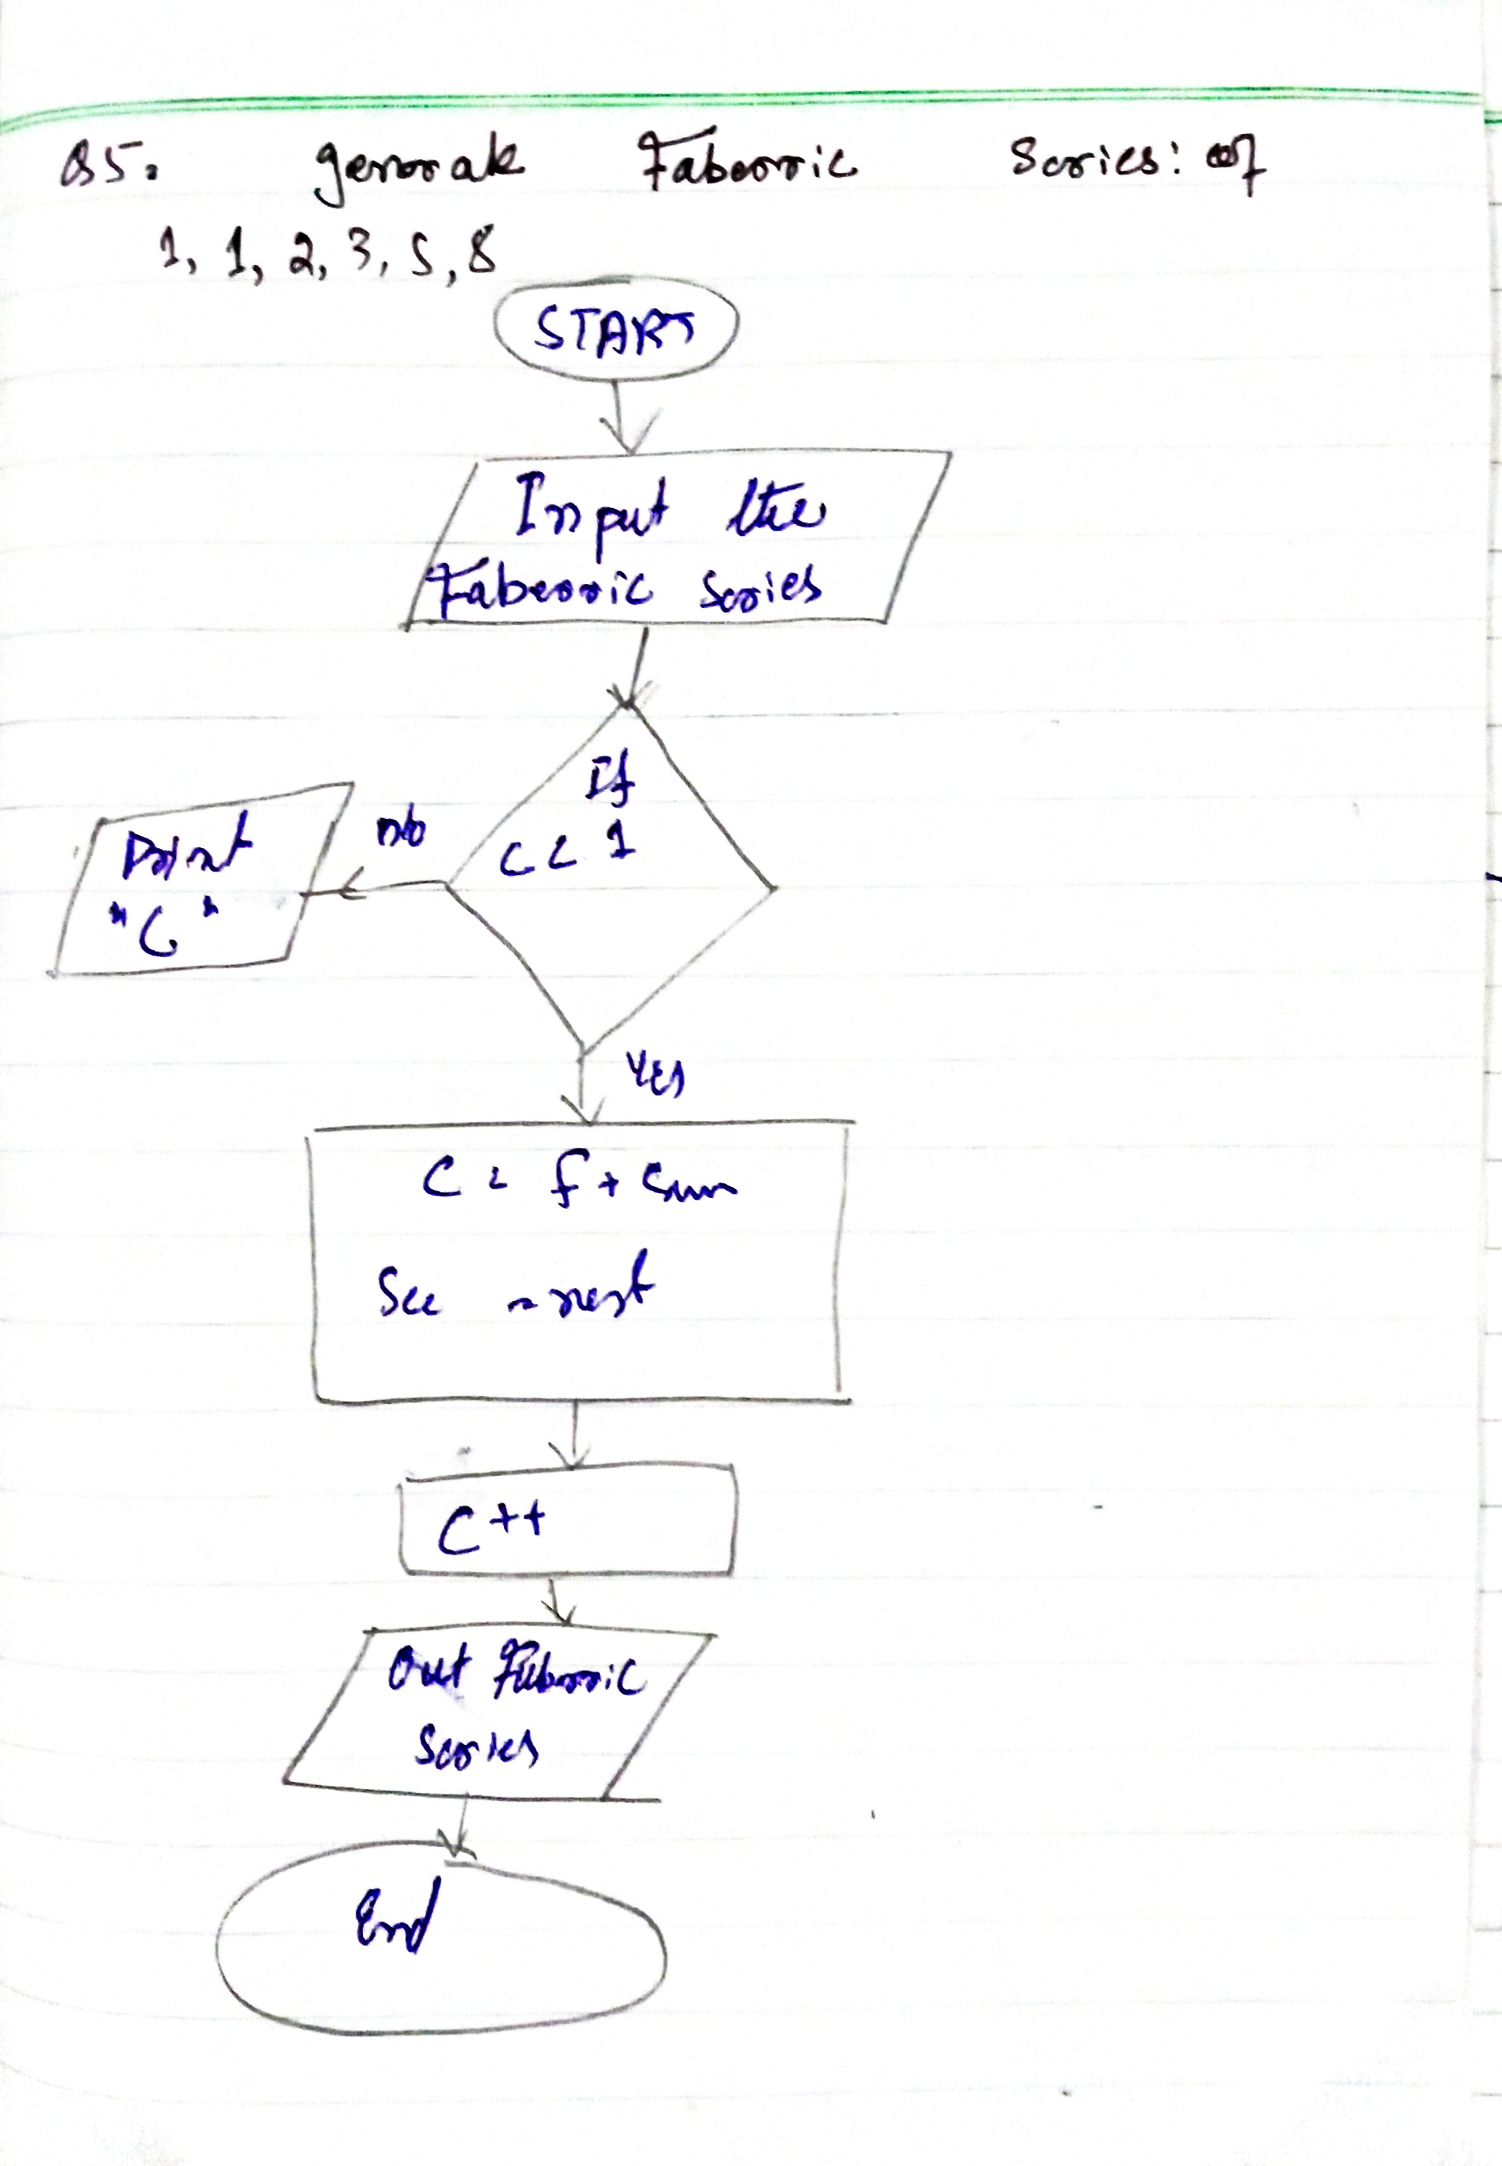 Q5. generate Faberric Series: of
1, 1, 2, 3, 5, 8
START
Input the
Faberric Series
If
C < 1
no
Print
"C"
Yes
C = f + sum
See = next
C++
Out Fiberric
Series
End